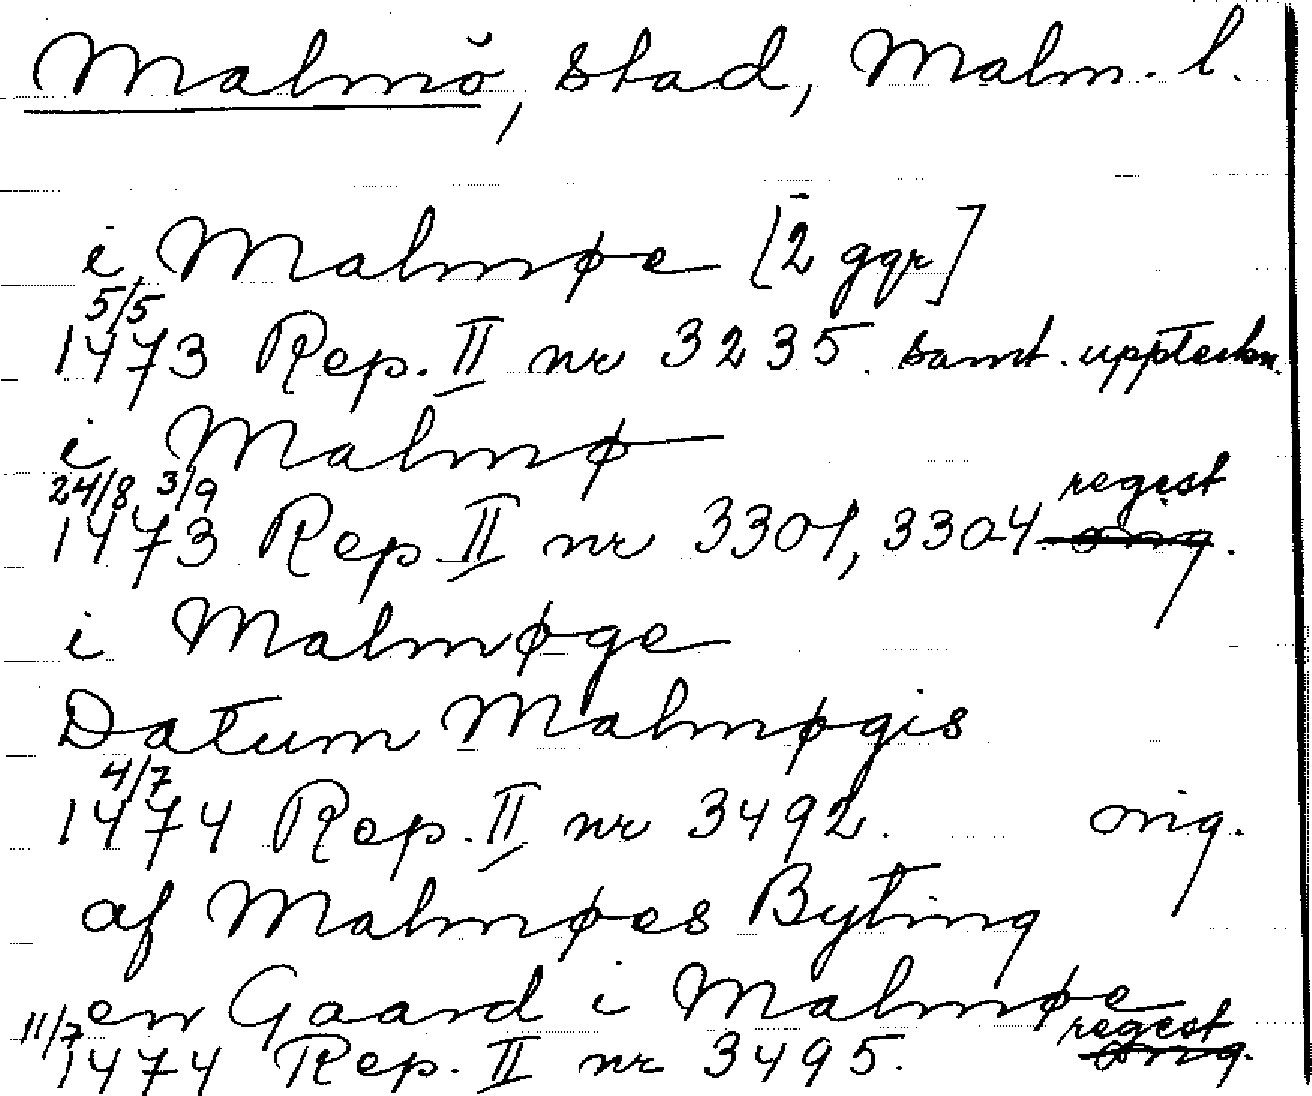 Malmö, stad, Malm. l.
i Malmøe [2 ggr]
5/5
1473 Rep. II nr 3235. samt. uppteckn.
i Malmø
24/8 3/9 regest
1473 Rep II nr 3301, 3304 orig.
i Malmøge
Datum Malmøgis
4/7
1474 Rep. II nr 3492. orig.
af Malmøes Byting
en Gaard i Malmøe
11/7 regest
1474 Rep. II nr 3495. orig.